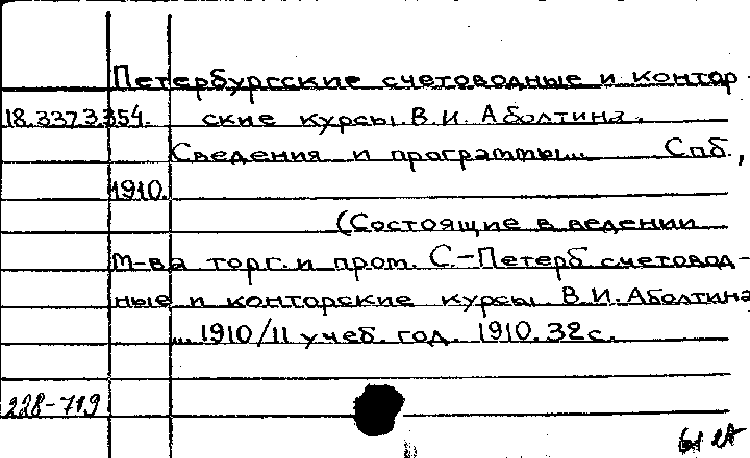 Петербургские счетоводные и контор-
18.337.3.354. ские курсы В.И. Аболтина.
Сведения и программы... Спб,
1910.
(Состоящие в ведении
м-ва торг. и пром. С-Петерб счетовод-
ные и конторские курсы В.И. Аболтина
... 1910/11 учеб. год. 1910. 32 с.
228-719